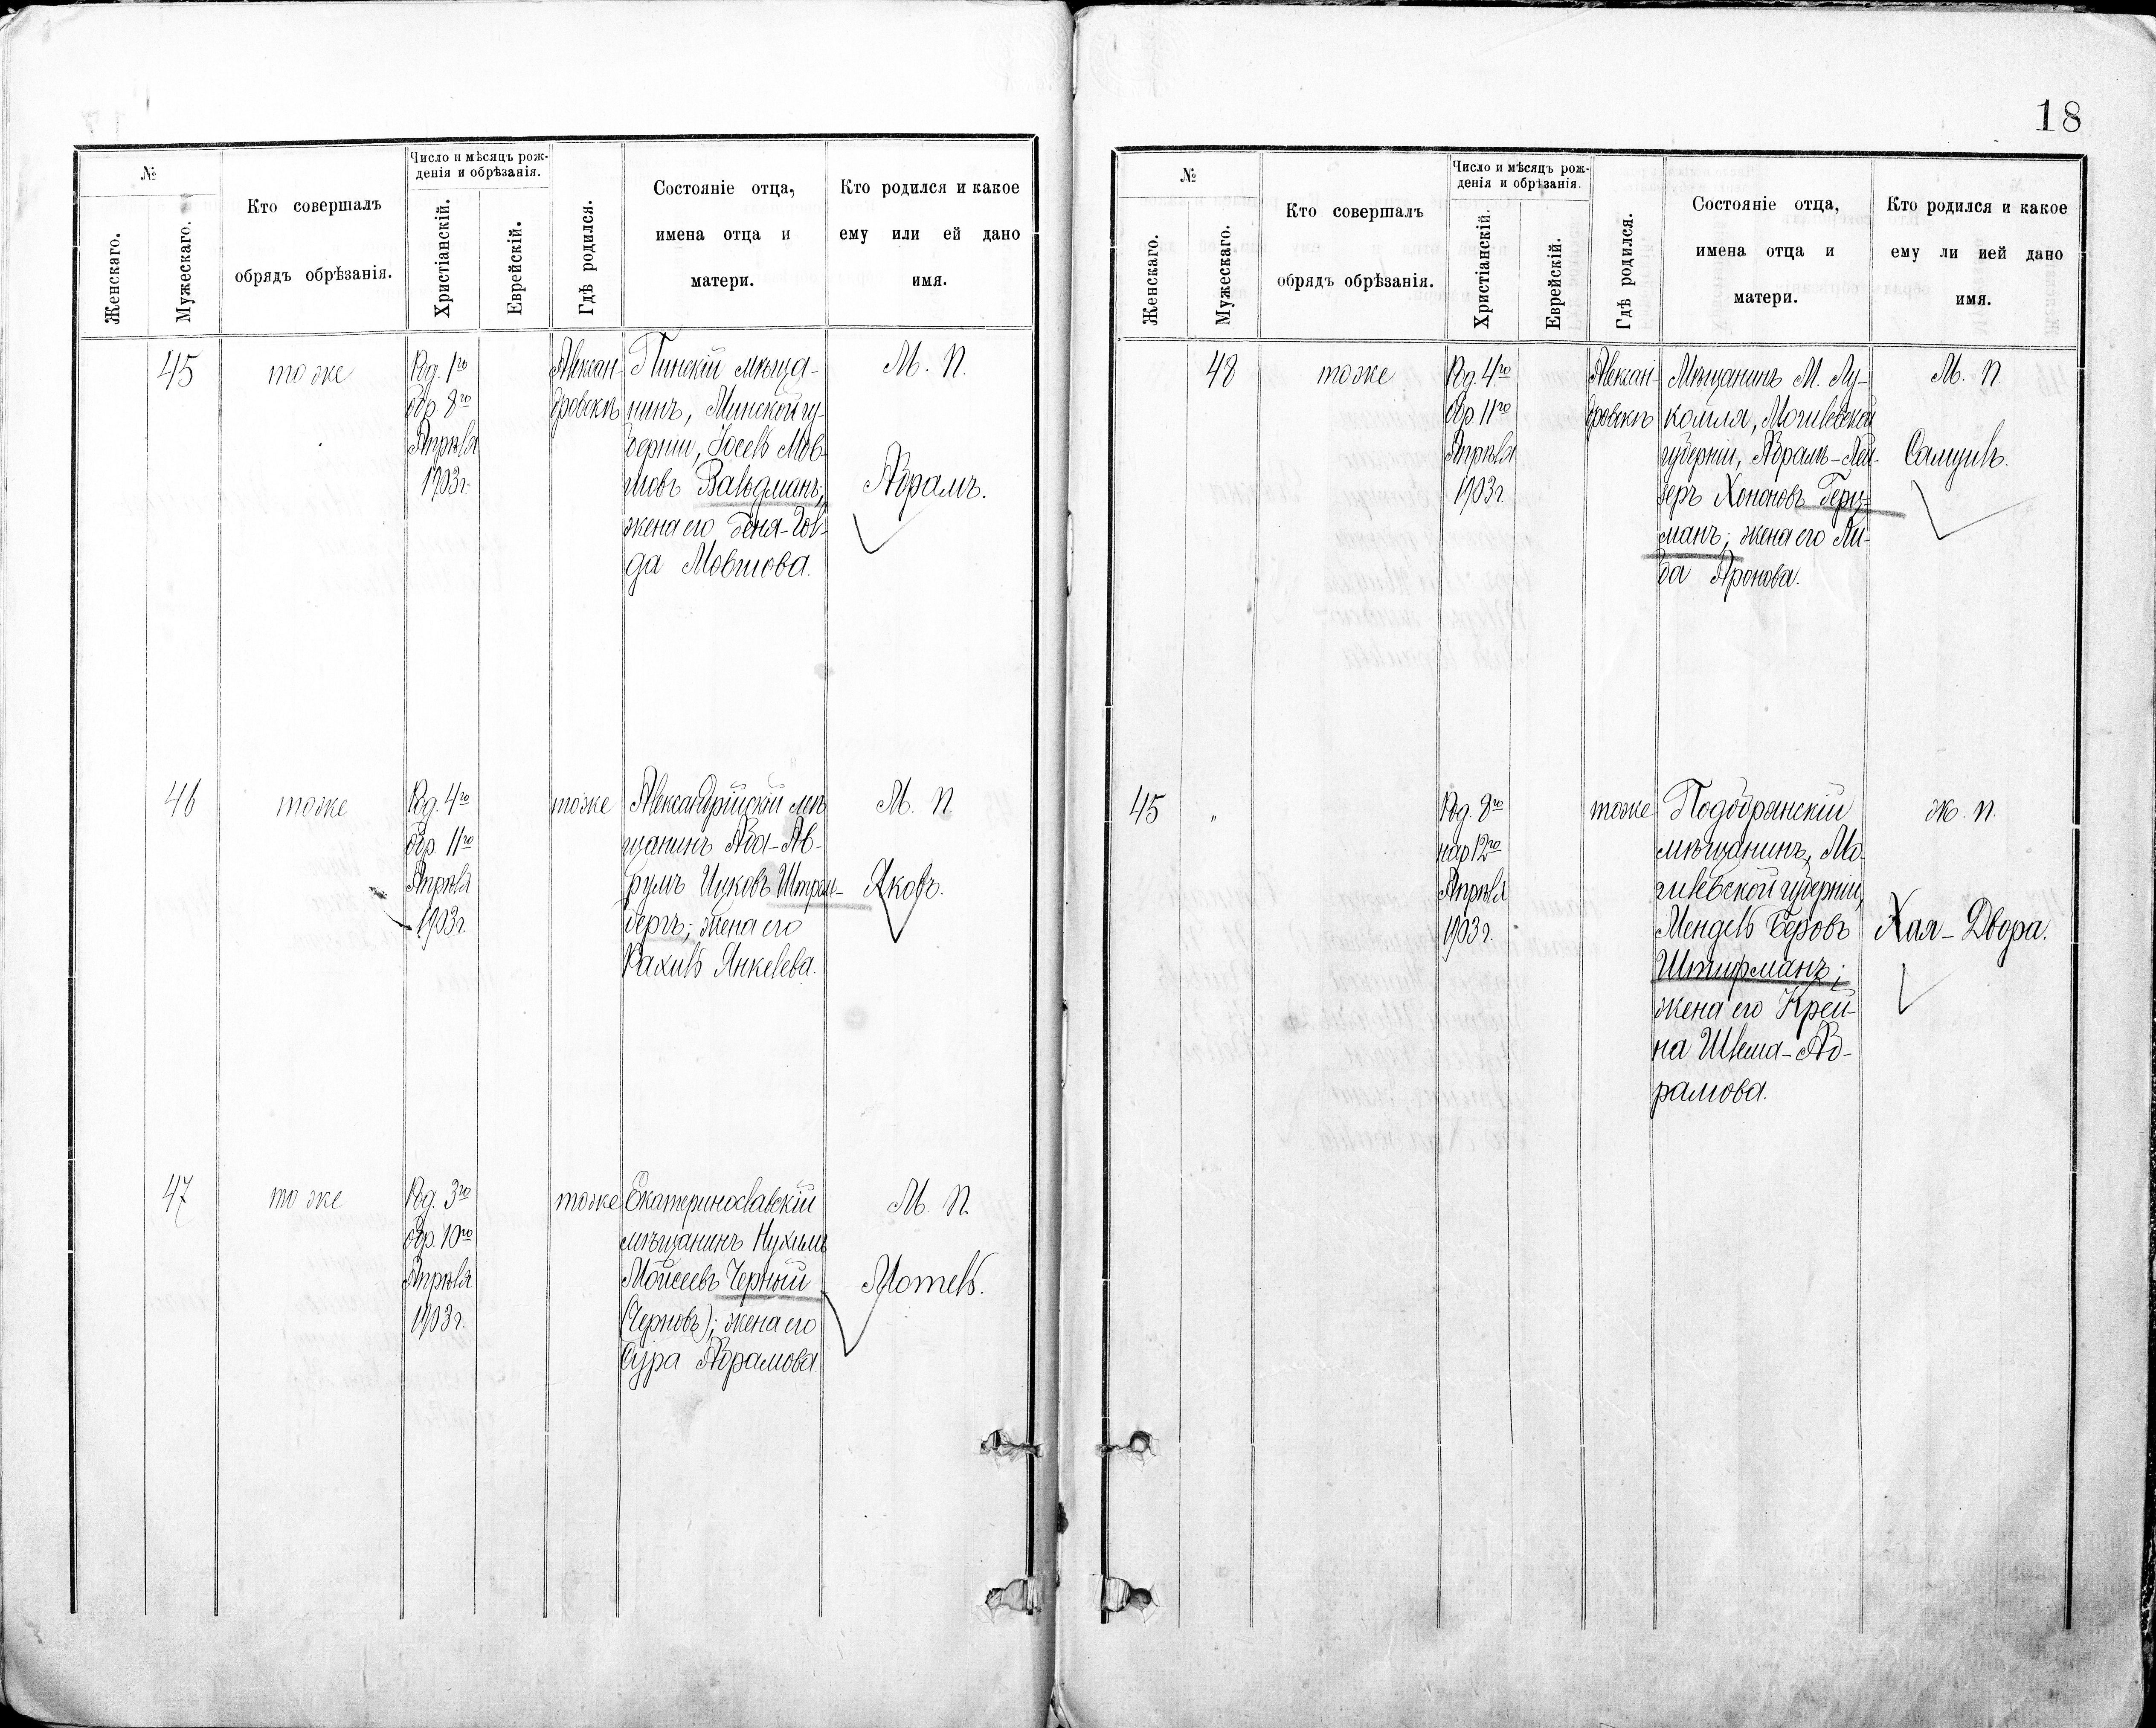 18
№
Женскаго.
Мужескаго.
Кто совершалъ
обрядъ обрѣзанія.
Число и мѣсяцъ рож-
денія и обрѣзанія.
Христіанскій.
Еврейскій.
Гдѣ родился.
Состояніе отца,
имена отца и
матери.
Кто родился и какое
ему или ей дано
имя.
45
тоже
Род. 1го
обр. 8го
Апрѣля
1903г.
Алексан-
дровскѣ
Пинскій мѣща-
нинъ, Минской гу-
берніи, Іосель Мов-
шовъ Вальдманъ;
жена его Беня-Гол-
да Мовшова.
М. п.
Абрамъ.
46
тоже
Род. 4го
обр. 11го
Апрѣля
1903г.
тоже
Александрійскій мѣ
щанинъ Аба-Ав-
румъ Ицковъ
бергъ; жена его
Рахиль Янкелева.
М. п.
Яковъ.
47
тоже
Род. 3го
обр. 10го
Апрѣля
1903г.
тоже
Екатеринославскій
мѣщанинъ Нухимъ
Моисеевъ Черный
(Черновъ); жена его
Сура Абрамова.
М. п.
Мотель.
№
Женскаго.
Мужескаго.
Кто совершалъ
обрядъ обрѣзанія.
Число и мѣсяцъ рож-
денія и обрѣзанія.
Христіанскій.
Еврейскій.
Гдѣ родился.
Состояніе отца,
имена отца и
матери.
Кто родился и какое
ему ли ией дано
имя.
48
тоже
Род. 4го
обр. 11го
Апрѣля
1903г.
Алексан-
дровскѣ
Мѣщанинъ М. Лу-
комля, Могилевской
губерніи, Абрамъ-Лей-
зеръ Хононовъ Герц-
манъ; жена его Ли-
ба Аронова.
М. п.
Самуилъ.
45
"
Род. 8го
нар. 12го
Апрѣля
1903г.
тоже
Подобрянскій
мѣщанинъ, Мо-
гилевской губерніи,
Мендель Беровъ
Штифманъ;
жена его Крей-
на Шлема-Аб-
рамова.
ж. п.
Хая-Двора.